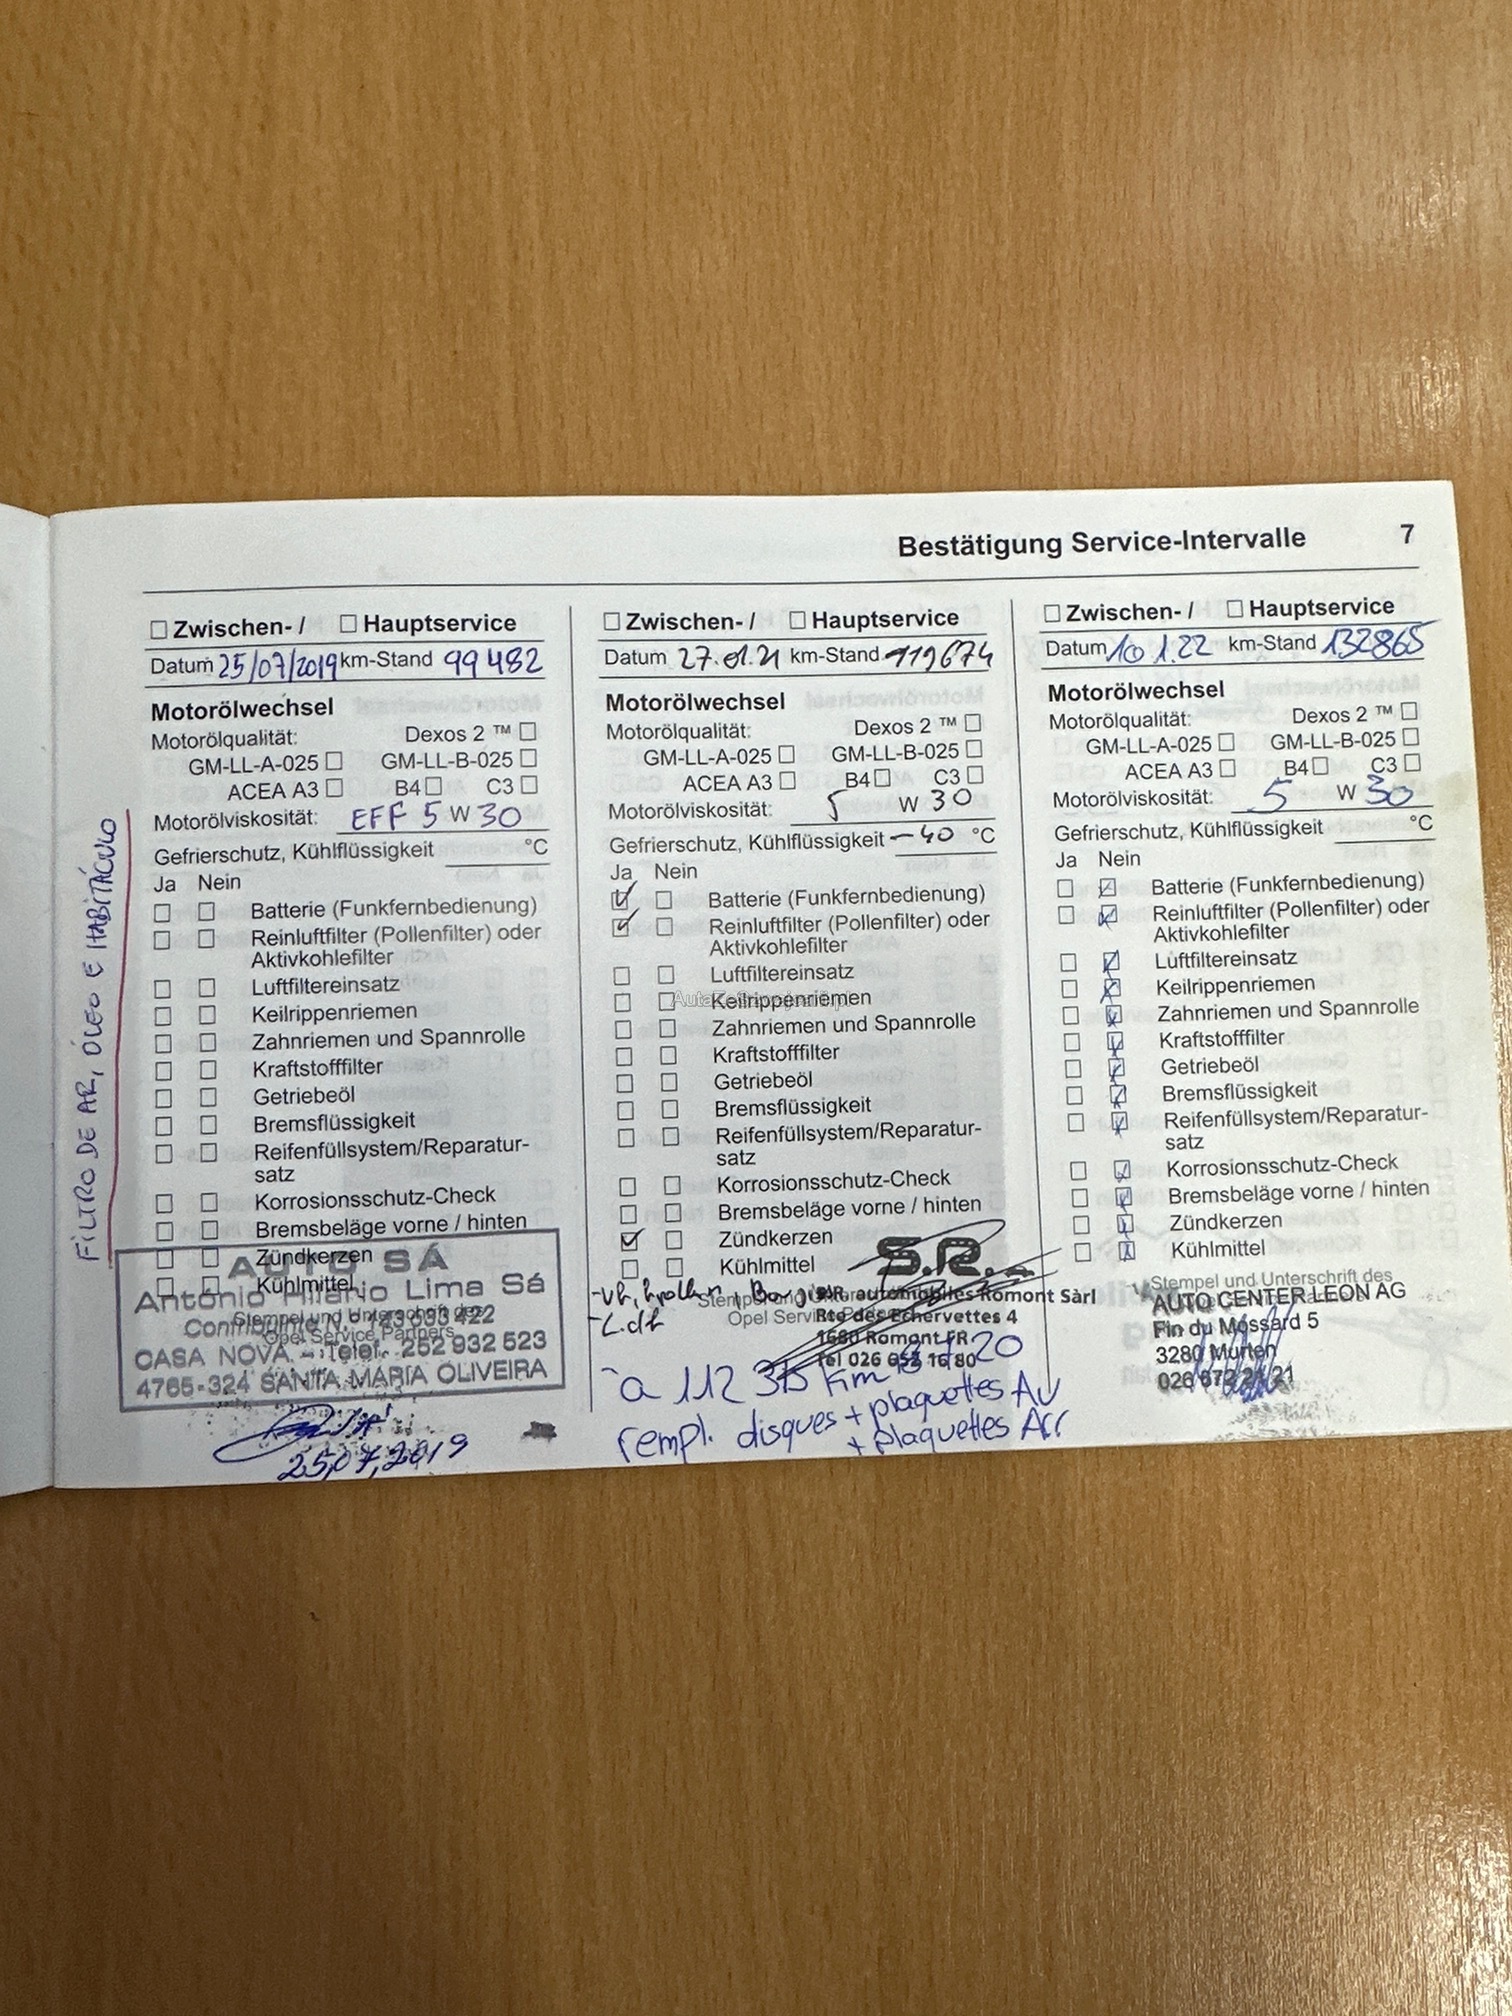 Bestätigung Service-Intervalle 7
☐ Zwischen- / ☐ Hauptservice
Datum 25/07/2019 km-Stand 99482
Motorölwechsel
Motorölqualität: Dexos 2 ™ ☐
GM-LL-A-025 ☐ GM-LL-B-025 ☐
ACEA A3 ☐ B4 ☐ C3 ☐
Motorölviskosität: EFF 5 W 30
Gefrierschutz, Kühlflüssigkeit °C
Ja Nein
☐ ☐ Batterie (Funkfernbedienung)
☐ ☐ Reinluftfilter (Pollenfilter) oder
Aktivkohlefilter
☐ ☐ Luftfiltereinsatz
☐ ☐ Keilrippenriemen
☐ ☐ Zahnriemen und Spannrolle
☐ ☐ Kraftstofffilter
☐ ☐ Getriebeöl
☐ ☐ Bremsflüssigkeit
☐ ☐ Reifenfüllsystem/Reparatur-
satz
☐ ☐ Korrosionsschutz-Check
☐ ☐ Bremsbeläge vorne / hinten
☐ ☐ Zündkerzen
☐ ☐ Kühlmittel
Stempel und Unterschrift des
Opel Service Partners
FILTRO DE AR, ÓLEO E HABITÁCULO
AUTO SÁ
António Hilário Lima Sá
Contribuinte N.º
CASA NOVA - Telef. 252 932 523
4765-324 SANTA MARIA OLIVEIRA
25,07,2019
☐ Zwischen- / ☐ Hauptservice
Datum 27.01.21 km-Stand 119674
Motorölwechsel
Motorölqualität: Dexos 2 ™ ☐
GM-LL-A-025 ☐ GM-LL-B-025 ☐
ACEA A3 ☐ B4 ☐ C3 ☐
Motorölviskosität: 5 W 30
Gefrierschutz, Kühlflüssigkeit -40 °C
Ja Nein
☑ ☐ Batterie (Funkfernbedienung)
☑ ☐ Reinluftfilter (Pollenfilter) oder
Aktivkohlefilter
☐ ☐ Luftfiltereinsatz
☐ ☐ Keilrippenriemen
☐ ☐ Zahnriemen und Spannrolle
☐ ☐ Kraftstofffilter
☐ ☐ Getriebeöl
☐ ☐ Bremsflüssigkeit
☐ ☐ Reifenfüllsystem/Reparatur-
satz
☐ ☐ Korrosionsschutz-Check
☐ ☐ Bremsbeläge vorne / hinten
☑ ☐ Zündkerzen
☐ ☐ Kühlmittel
S.R.
automobiles Romont Sàrl
Rte des Echervettes 4
1680 Romont FR
Tél 026 652 16 80
à 112 315 km 20
rempl. disques + plaquettes Av
+ plaquettes Arr
☐ Zwischen- / ☐ Hauptservice
Datum 10.1.22 km-Stand 132865
Motorölwechsel
Motorölqualität: Dexos 2 ™ ☐
GM-LL-A-025 ☐ GM-LL-B-025 ☐
ACEA A3 ☐ B4 ☐ C3 ☐
Motorölviskosität: 5 W 30
Gefrierschutz, Kühlflüssigkeit °C
Ja Nein
☐ ☑ Batterie (Funkfernbedienung)
☐ ☑ Reinluftfilter (Pollenfilter) oder
Aktivkohlefilter
☐ ☑ Luftfiltereinsatz
☐ ☑ Keilrippenriemen
☐ ☑ Zahnriemen und Spannrolle
☐ ☑ Kraftstofffilter
☐ ☑ Getriebeöl
☐ ☑ Bremsflüssigkeit
☐ ☑ Reifenfüllsystem/Reparatur-
satz
☐ ☑ Korrosionsschutz-Check
☐ ☑ Bremsbeläge vorne / hinten
☐ ☑ Zündkerzen
☐ ☑ Kühlmittel
Stempel und Unterschrift des
AUTO CENTER LEON AG
Fin du Mossard 5
3280 Murten
026 672 21 21